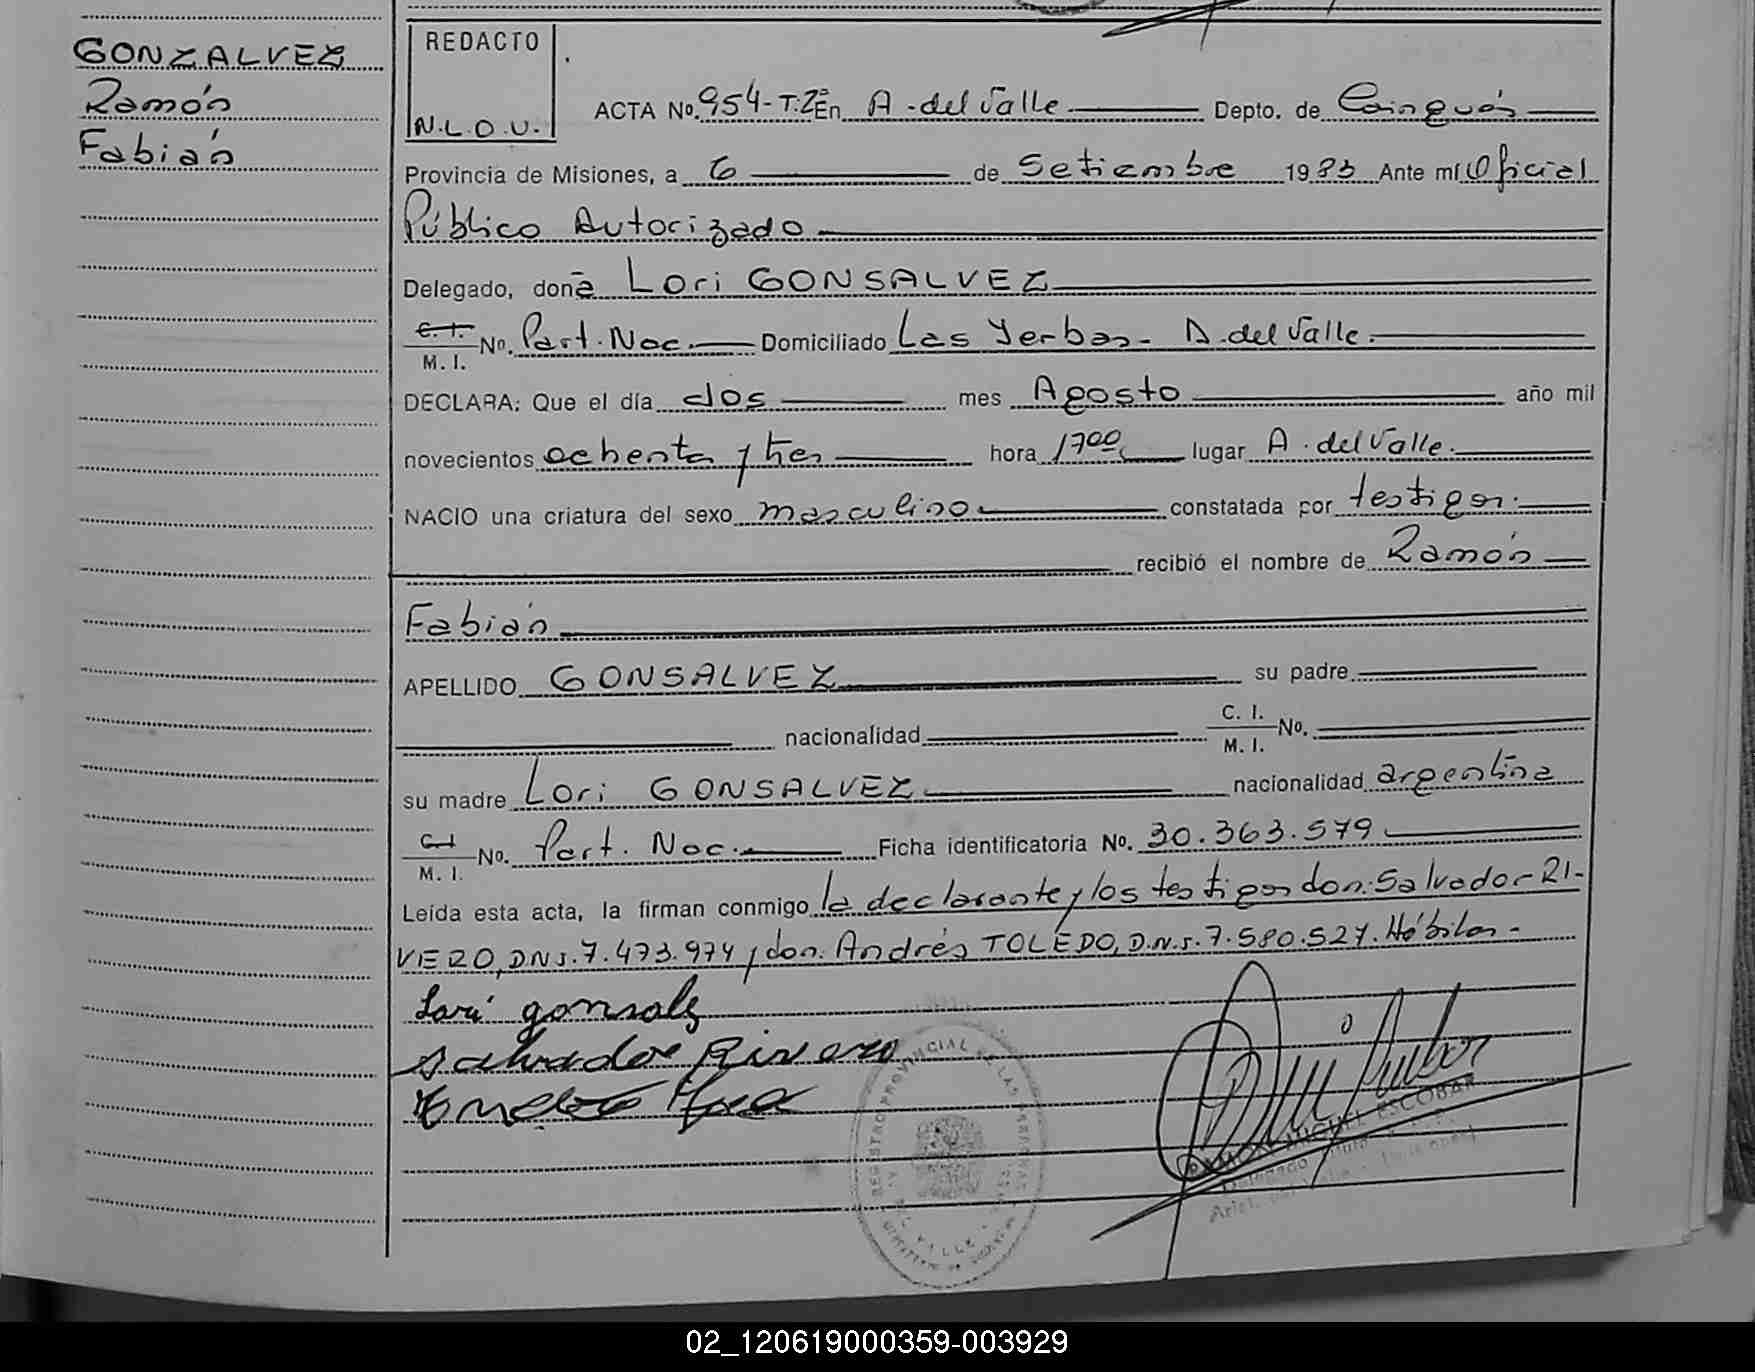 GONZALVEZ
Ramón
Fabián
REDACTO
N.L.O.U.
ACTA No. 954-T:2º En A. del Valle Depto. de Cainguás
Provincia de Misiones, a 6 de Setiembre 1983 Ante mí Oficial
Público Autorizado
Delegado, doña Lori GONSALVEZ
C. I. M. I. No. Part. Nac. Domiciliado Las Yerbas - A. del Valle.
DECLARA: Que el día dos mes Agosto año mil
novecientos ochenta y tres hora 1700 lugar A. del Valle.
NACIO una criatura del sexo masculino constatada por testigos.
recibió el nombre de Ramón
Fabián
APELLIDO GONSALVEZ su padre
nacionalidad C. I. M. I. No.
su madre Lori GONSALVEZ nacionalidad argentina
C. I M. I. No. Part. Nac. Ficha identificatoria No. 30.363.579
Leída esta acta, la firman conmigo la declarante y los testigos don: Salvador RI-
VERO, D.N.I. 7.473.974 y don: Andrés TOLEDO, D.N.I. 7.580.527. Hábiles.-
Lori gonsalz
Salvador Rivero
REGISTRO PROVINCIAL DE LAS PERSONAS
DEL VALLE
RAMON MIGUEL ESCOBAR
02_120619000359-003929